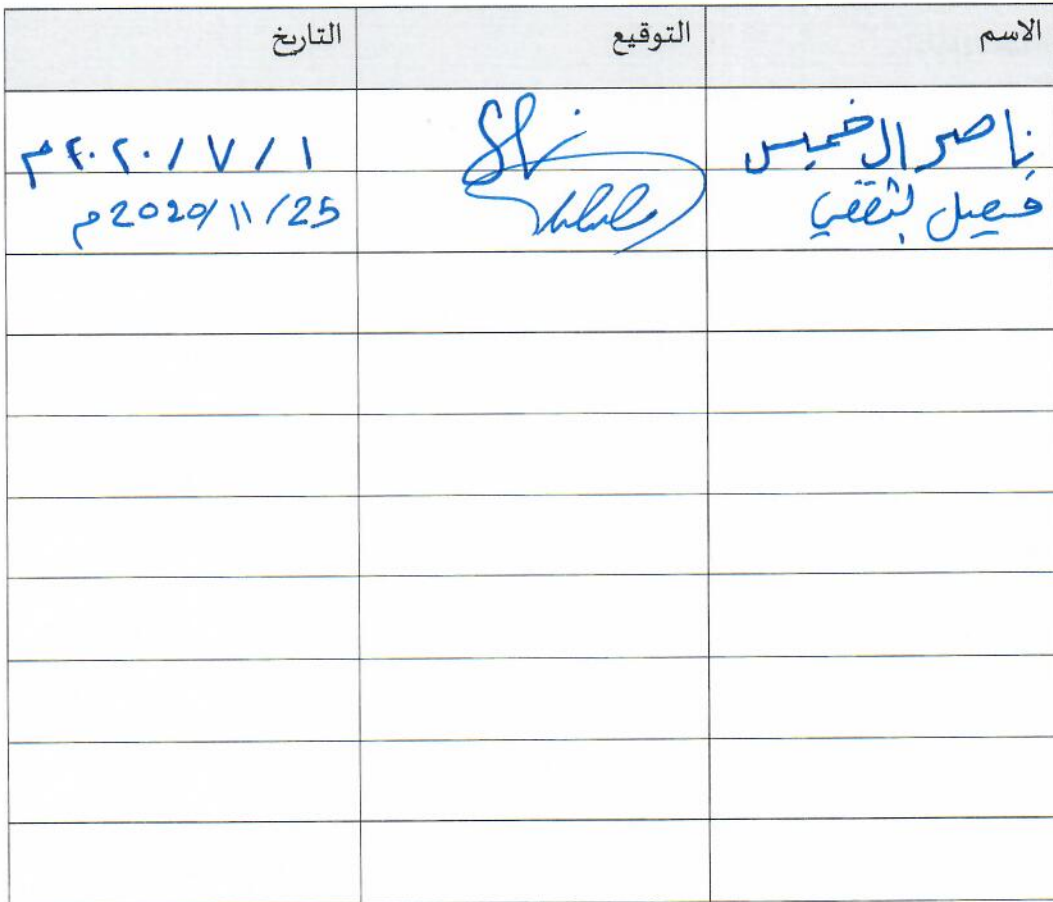 الاسم التوقيع التاريخ
ناصر ال خميس ١ / ٧ / ٢٠٢٠م
فيصل الثقفي 2020/11/25م